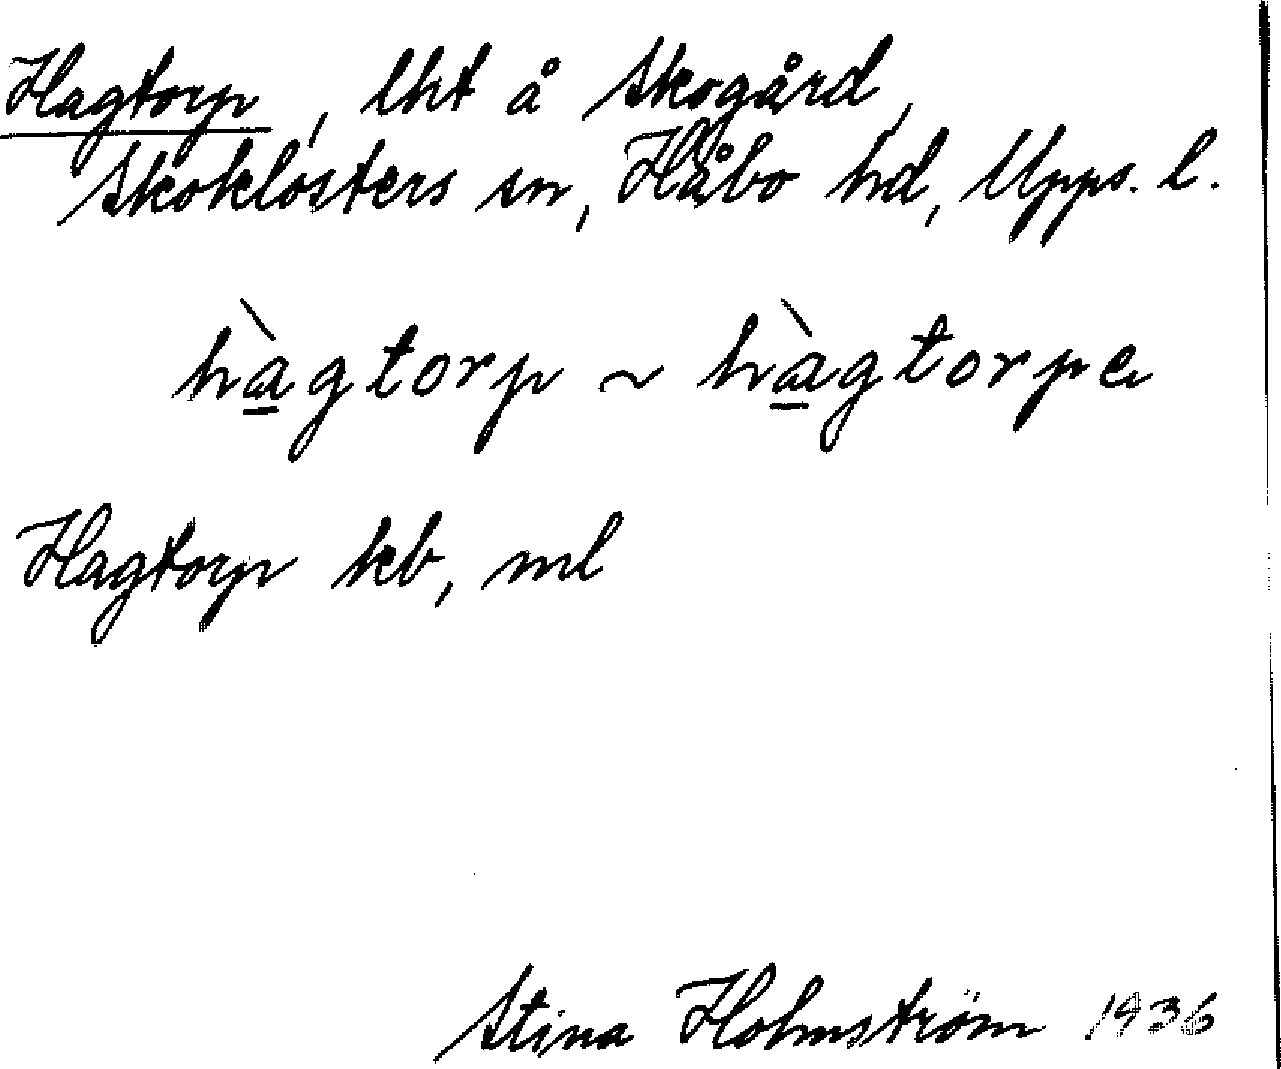 Hagtorp, lht å Skogård,
Skoklosters sn, Håbo hd, Upps. l.
hàgtorp ~ hàgtorpe
Hagtorp kb, ml
Stina Holmström 1936